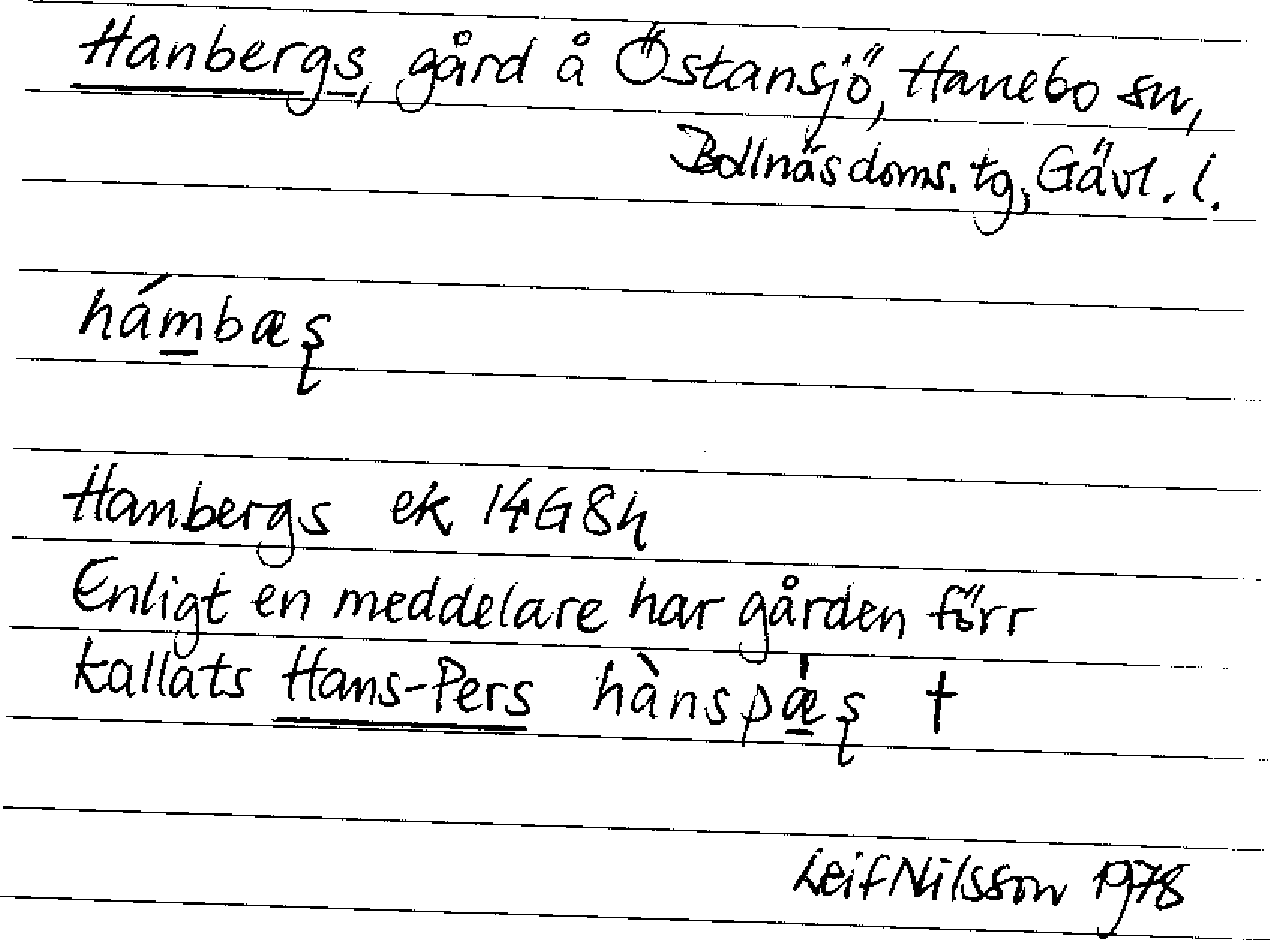 Hanbergs, gård å Östansjö, Hanebo sn,
Bollnäs doms. tg, Gävl. l.
hám̲bæʂ
Hanbergs ek 14G8h
Enligt en meddelare har gården förr
kallats Hans-Pers hànspæ̲̍ʂ †
Leif Nilsson 1978